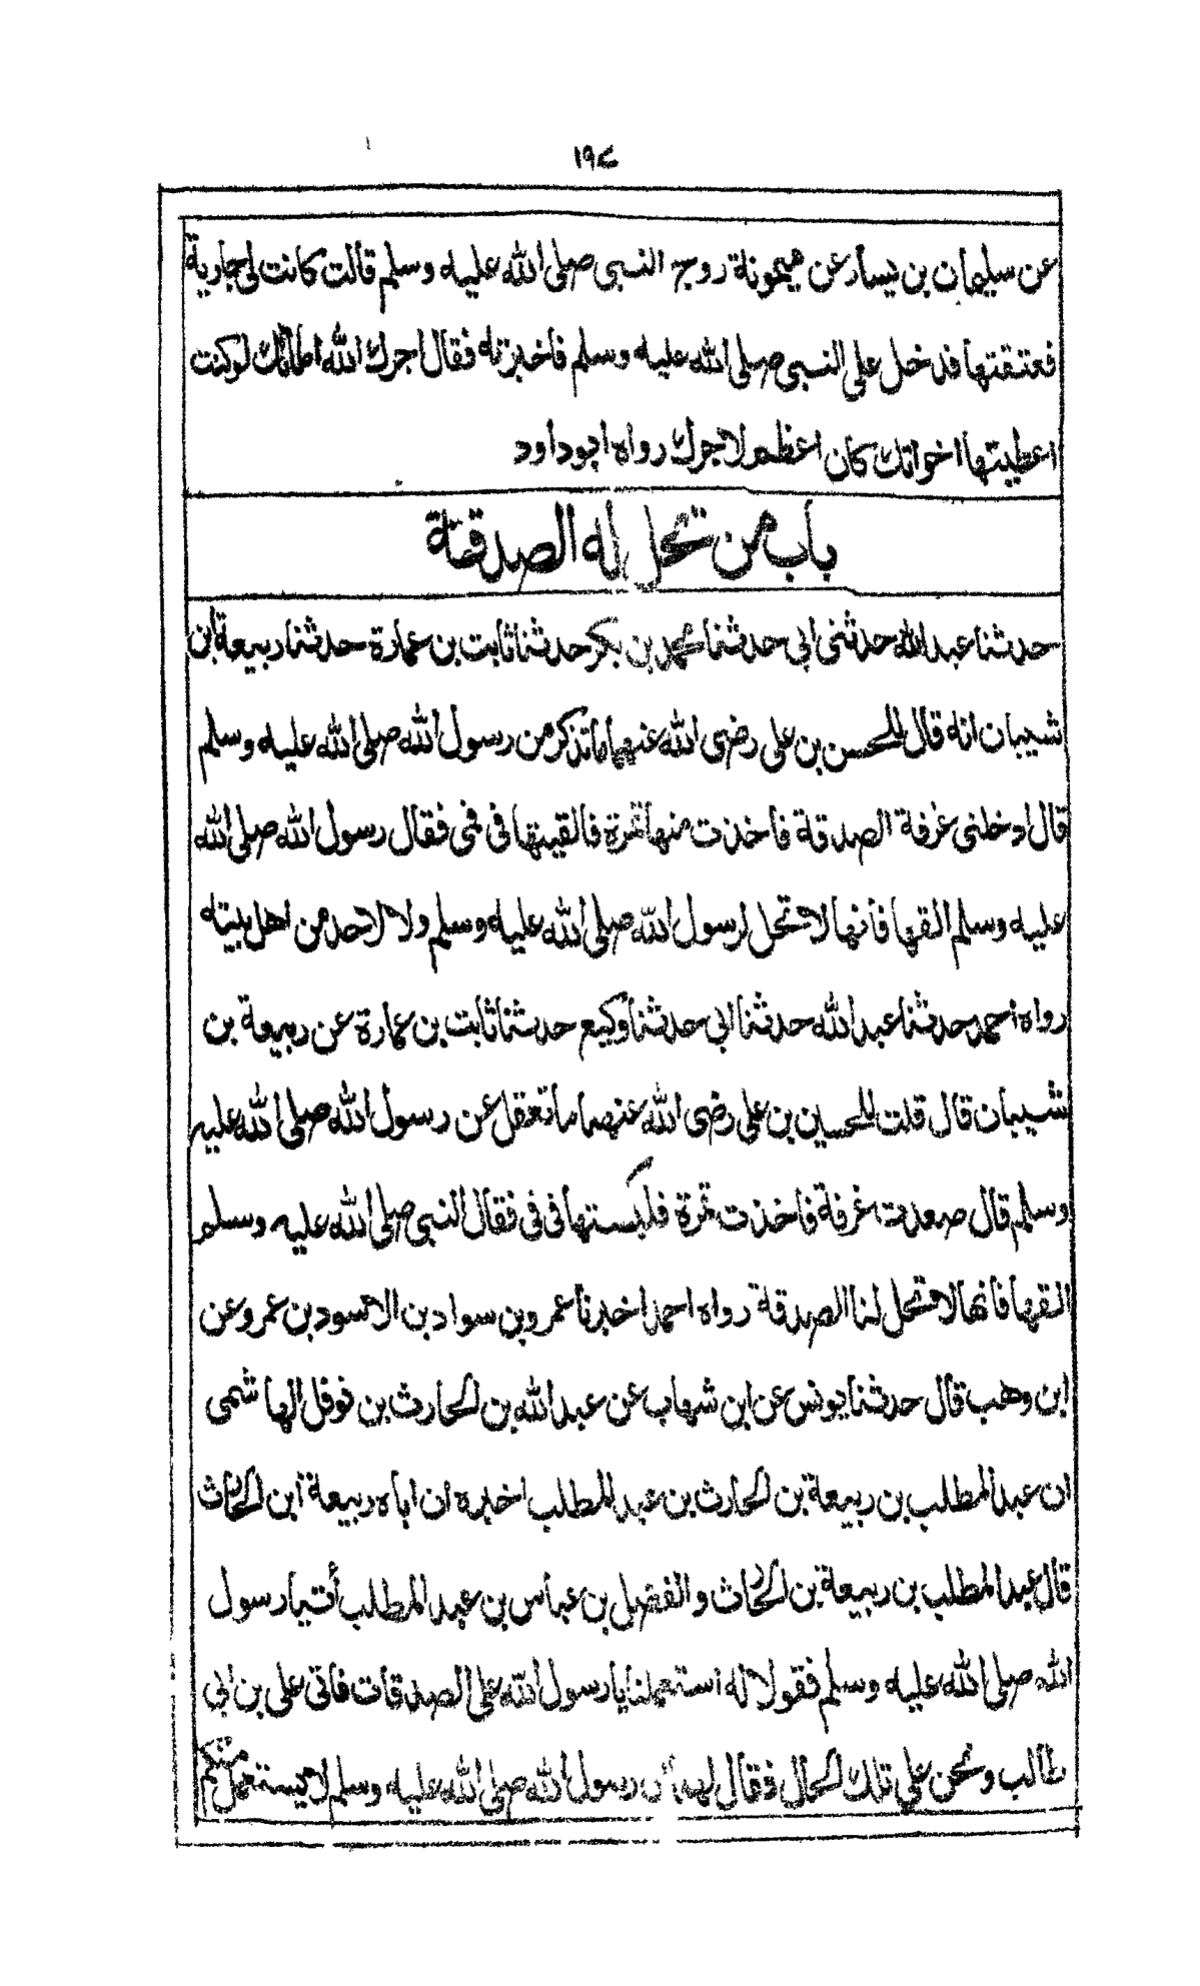 ١٩٤
عن سليمان بن يسار عن ميمونة زوج النبي صلى الله عليه وسلم قالت كانت لي جارية
فعتقتها فدخل علي النبي صلى الله عليه وسلم فاخبرته فقال اجرك الله اما انك لوكنت
اعطيتها اخواتك كان اعظم لاجرك رواه ابوداود
باب من تحل له الصدقة
حدثنا عبد الله حدثنى ابي حدثنا محمد بن بكر حدثنا ثابت بن عمارة حدثنا ربيعة ابن
شيبان انه قال للحسن بن على رضى الله عنهما ما تذكر من رسول الله صلى الله عليه وسلم
قال ادخلنى غرفة الصدقة فاخذت منها تمرة فالقيتها في فمي فقال رسول الله صلى الله
عليه وسلم القها فانها لا تحل لرسول الله صلى الله عليه وسلم ولا لاحد من اهل بيته
رواه احمد حدثنا عبد الله حدثنا ابي حدثنا وكيع حدثنا ثابت بن عمارة عن ربيعة بن
شيبان قال قلت للحسين بن على رضى الله عنهما ما تعقل عن رسول الله صلى الله عليه
وسلم قال صعدت غرفة فاخذت تمرة فلكستها في في فقال النبي صلى الله عليه وسلم
القها فانها لا تحل لنا الصدقة رواه احمد اخبرنا عمرو بن سواد بن الاسود بن عمرو عن
ابن وهب قال حدثنا يونس عن ابن شهاب عن عبد الله بن الحارث بن نوفل الهاشمى
ان عبد المطلب بن ربيعة بن الحارث بن عبد المطلب اخبره ان اباه ربيعة ابن الحارث
قال عبد المطلب بن ربيعة بن الحارث والفضل بن عباس بن عبد المطلب أتيا رسول
الله صلى الله عليه وسلم فقولا له استعملنا يا رسول الله على الصدقات فاتى على بن ابي
طالب ونحن على تلك الحال فقال لهما ان رسول الله صلى الله عليه وسلم لا يستعمل منكم